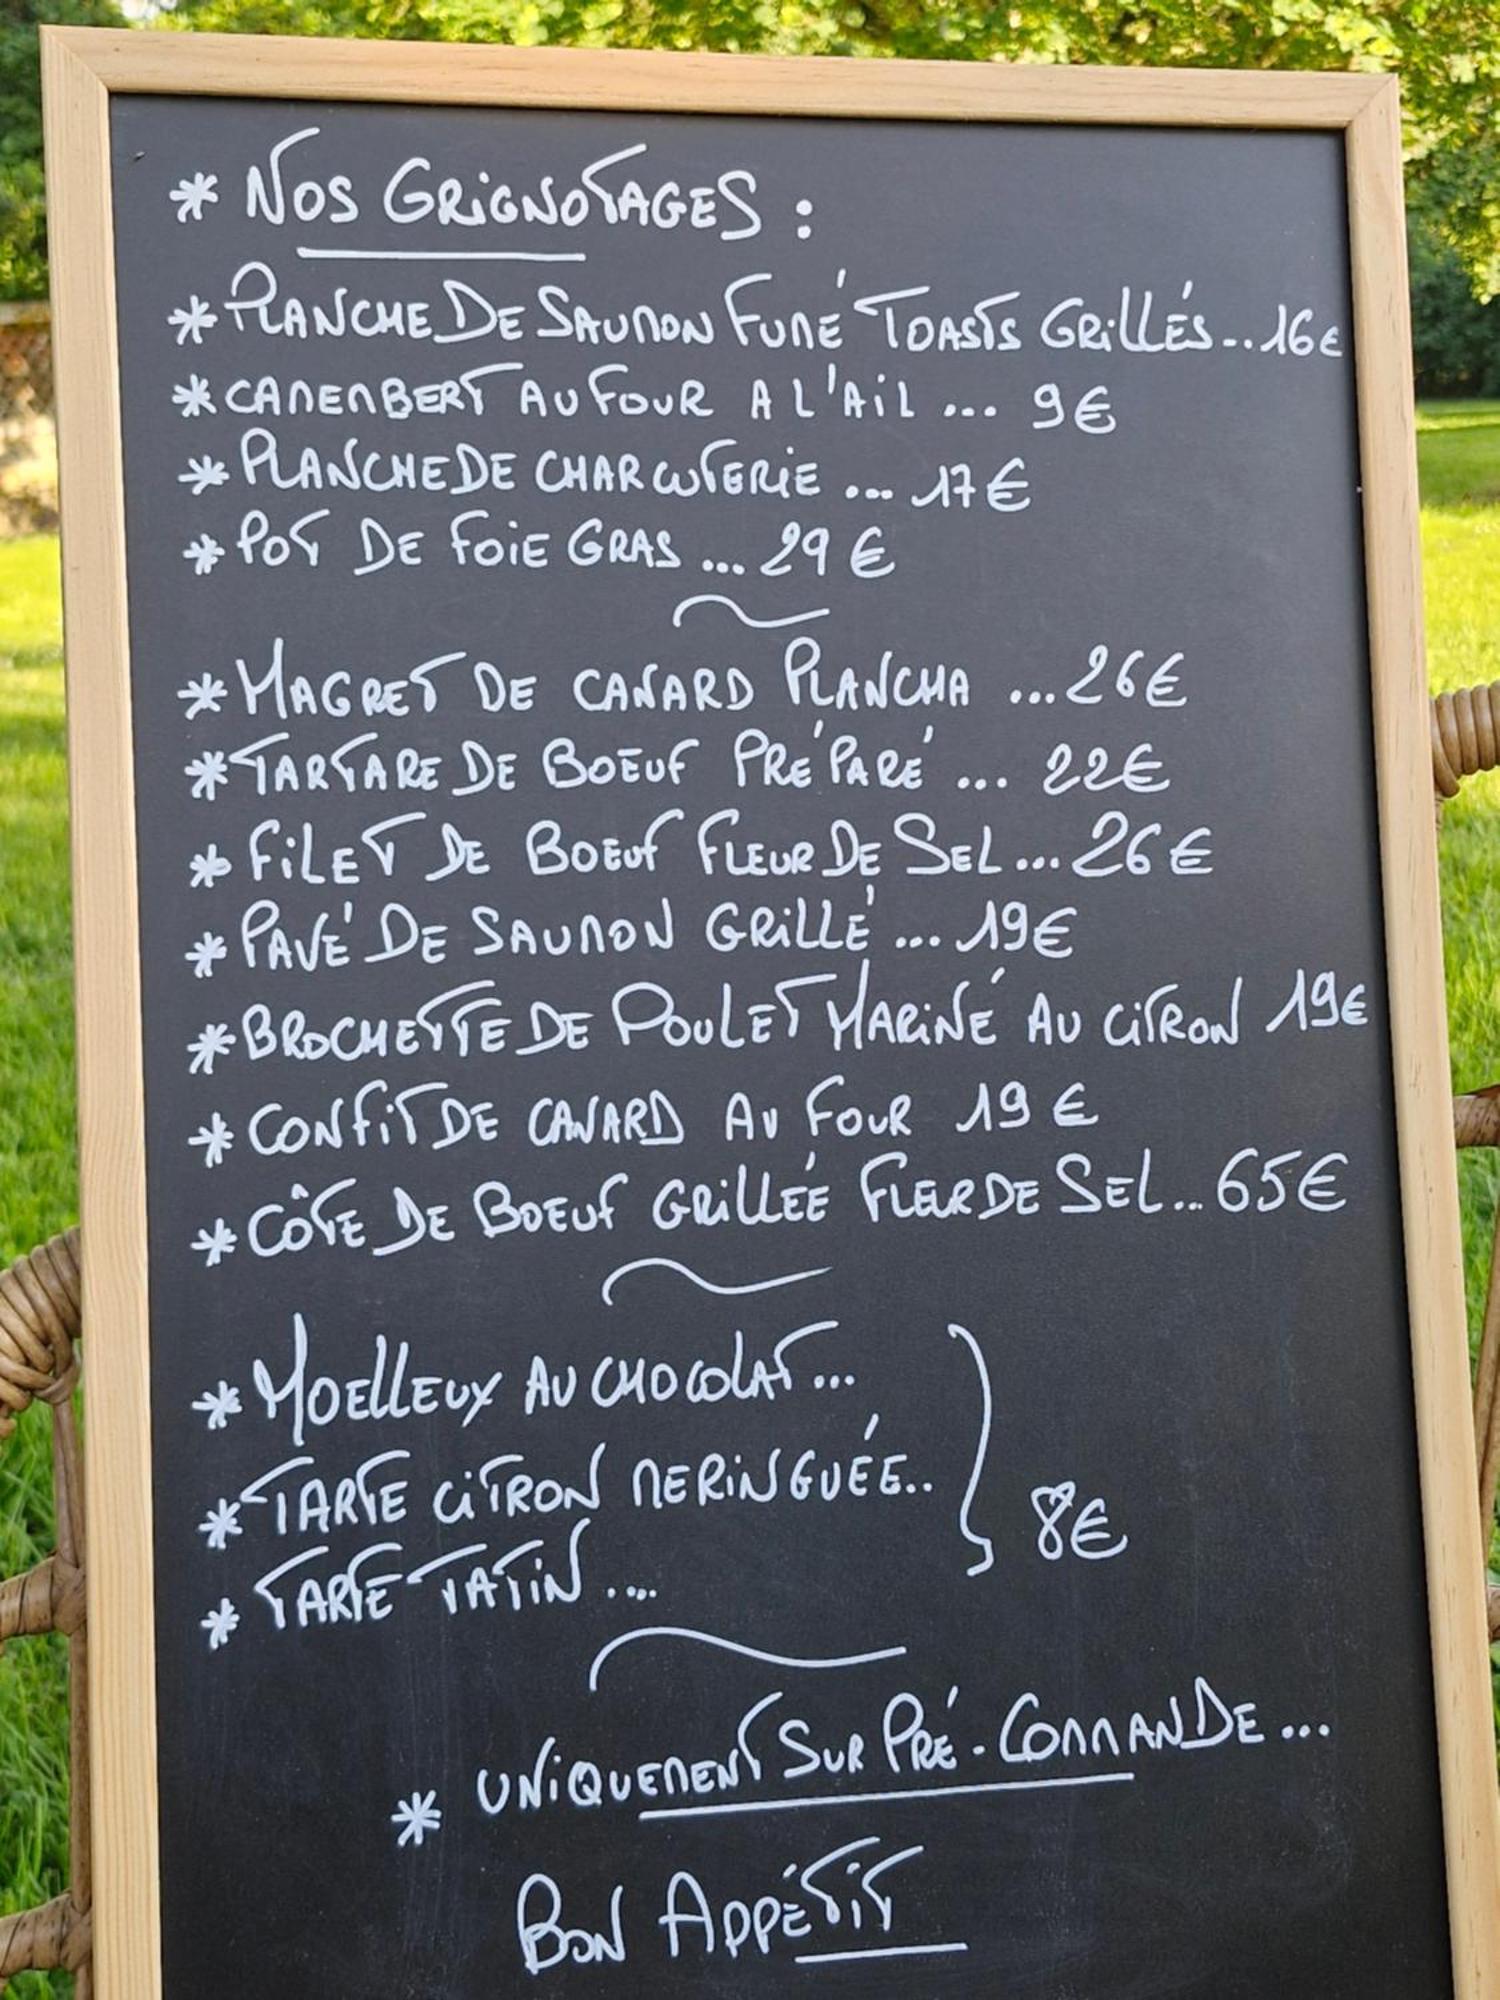 * NOS GRIGNOTAGES :
* PLANCHE DE SAUMON FUMÉ TOASTS GRILLÉS... 16€
* CAMEMBERT AU FOUR A L'AIL ... 9€
* PLANCHE DE CHARCUTERIE ... 17€
* POT DE FOIE GRAS ... 29€
~
* MAGRET DE CANARD PLANCHA ... 26€
* TARTARE DE BOEUF PRÉPARÉ ... 22€
* FILET DE BOEUF FLEUR DE SEL ... 26€
* PAVÉ DE SAUMON GRILLÉ ... 19€
* BROCHETTE DE POULET MARINÉ AU CITRON 19€
* CONFIT DE CANARD AU FOUR 19€
* CÔTE DE BOEUF GRILLÉE FLEUR DE SEL... 65€
~
* MOELLEUX AU CHOCOLAT...
* TARTE CITRON MERINGUÉE..
* TARTE TATIN ....
8€
~
* UNIQUEMENT SUR PRÉ-COMMANDE...
BON APPÉTIT